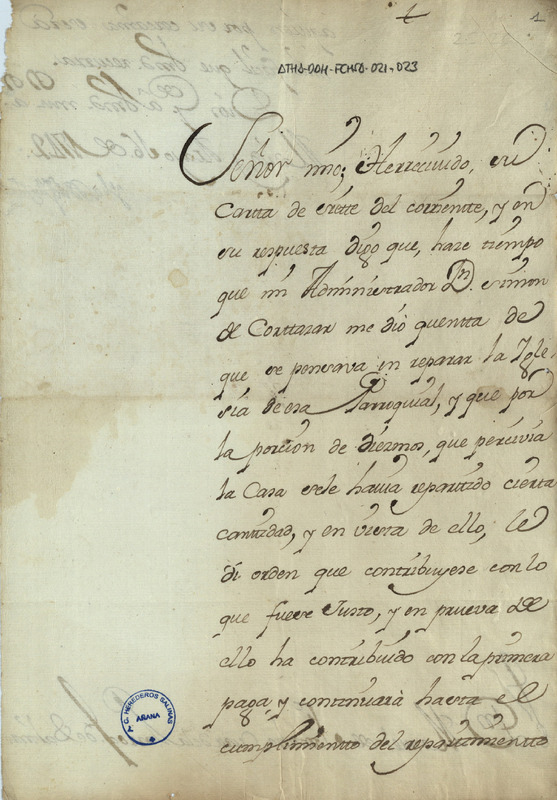 1
ATHA-DOH-FCHSA-021-023
Señor mio; He rrecivido, su
Cartta de siette del corriente, y en
su respuesta digo que, haze tiempo
que mi Administrador Dn. simon
de Corttazar me dio quentta de
que se pensava en reparar la Igle
sia de esa Parroquial, y que por
la porcion de diezmos, que percivia
la Casa sele havia repartido cierta
cantidad, y en vista de ello, le
di orden que contribuyese con lo
que fuese Justo, y en prueva de
ello ha contribuido con la primera
paga y continuarà hasta el
cumplimiento del repartimientto
C. HEREDEROS SALINAS
AÑANA